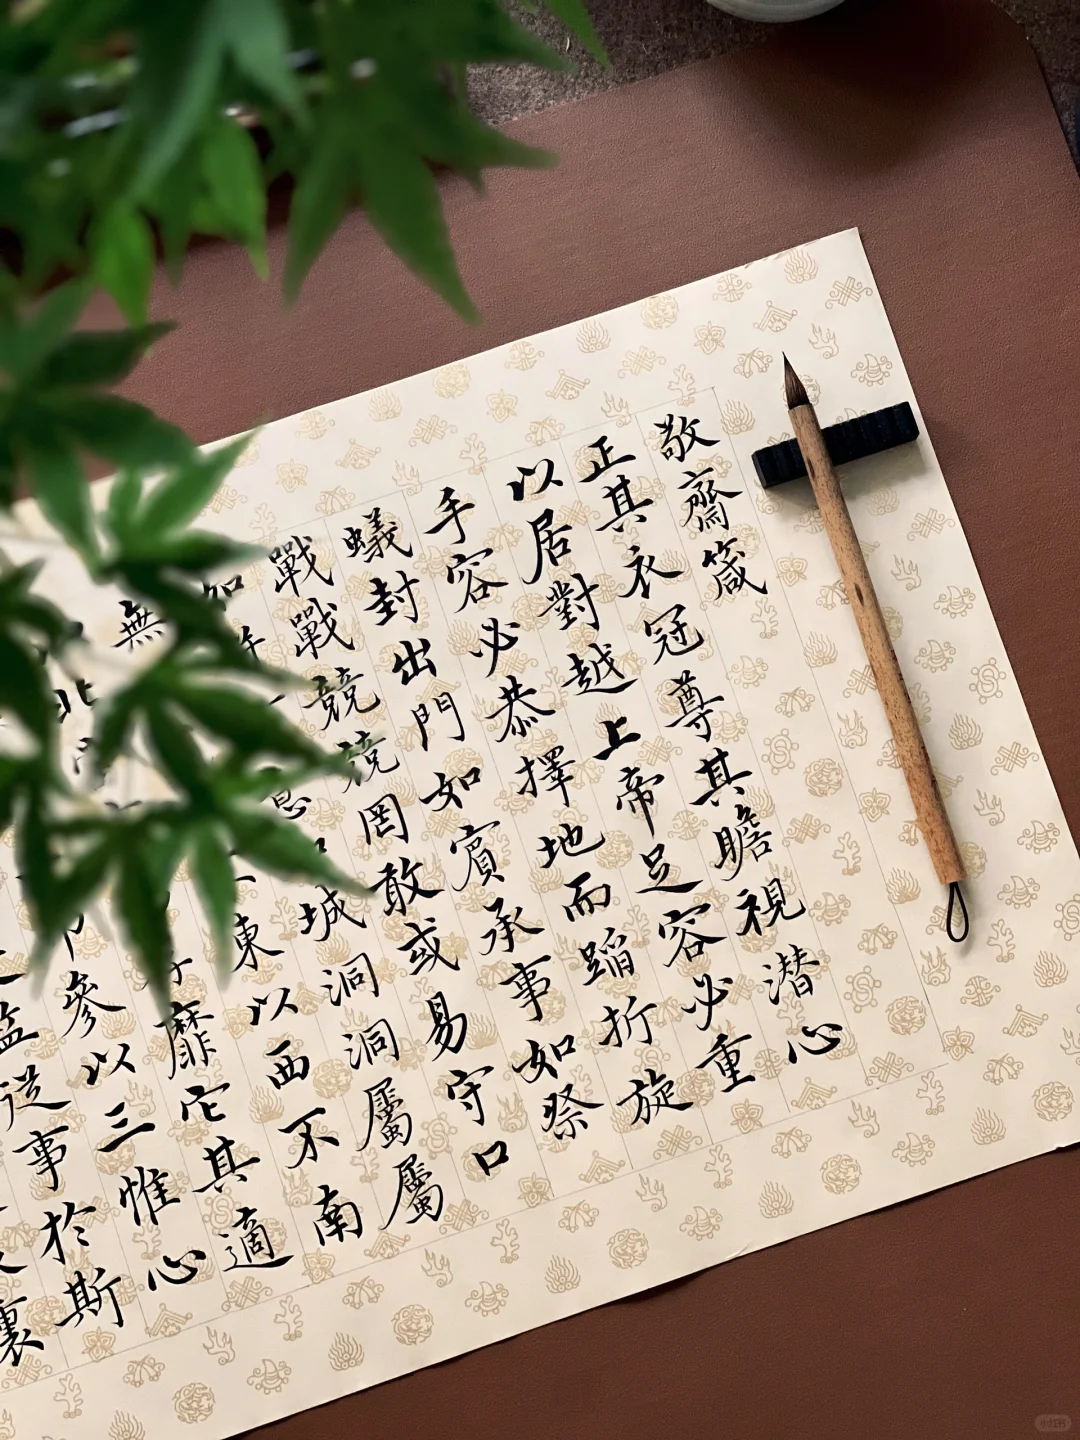 敬齋箴
正其衣冠尊其瞻視潜心
以居對越上帝足容必重
手容必恭擇地而蹈折旋
蟻封出門如賓承事如祭
戰戰兢兢罔敢或易守口
如城洞洞屬屬
無東以西不南
以北靡它其適
參以三惟心
監從事於斯
裏